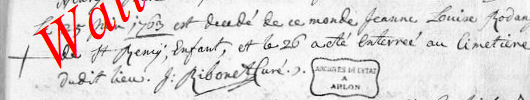 Le 25 Juin 1763 est decedé de ce monde Jeanne Louise Rodan
de St Remÿ, Enfant, et le 26 a eté enterreé au Cimetiere
dudit lieu. J: Ribonet Curé.
ARCHIVES DE L'ETAT
A
ARLON